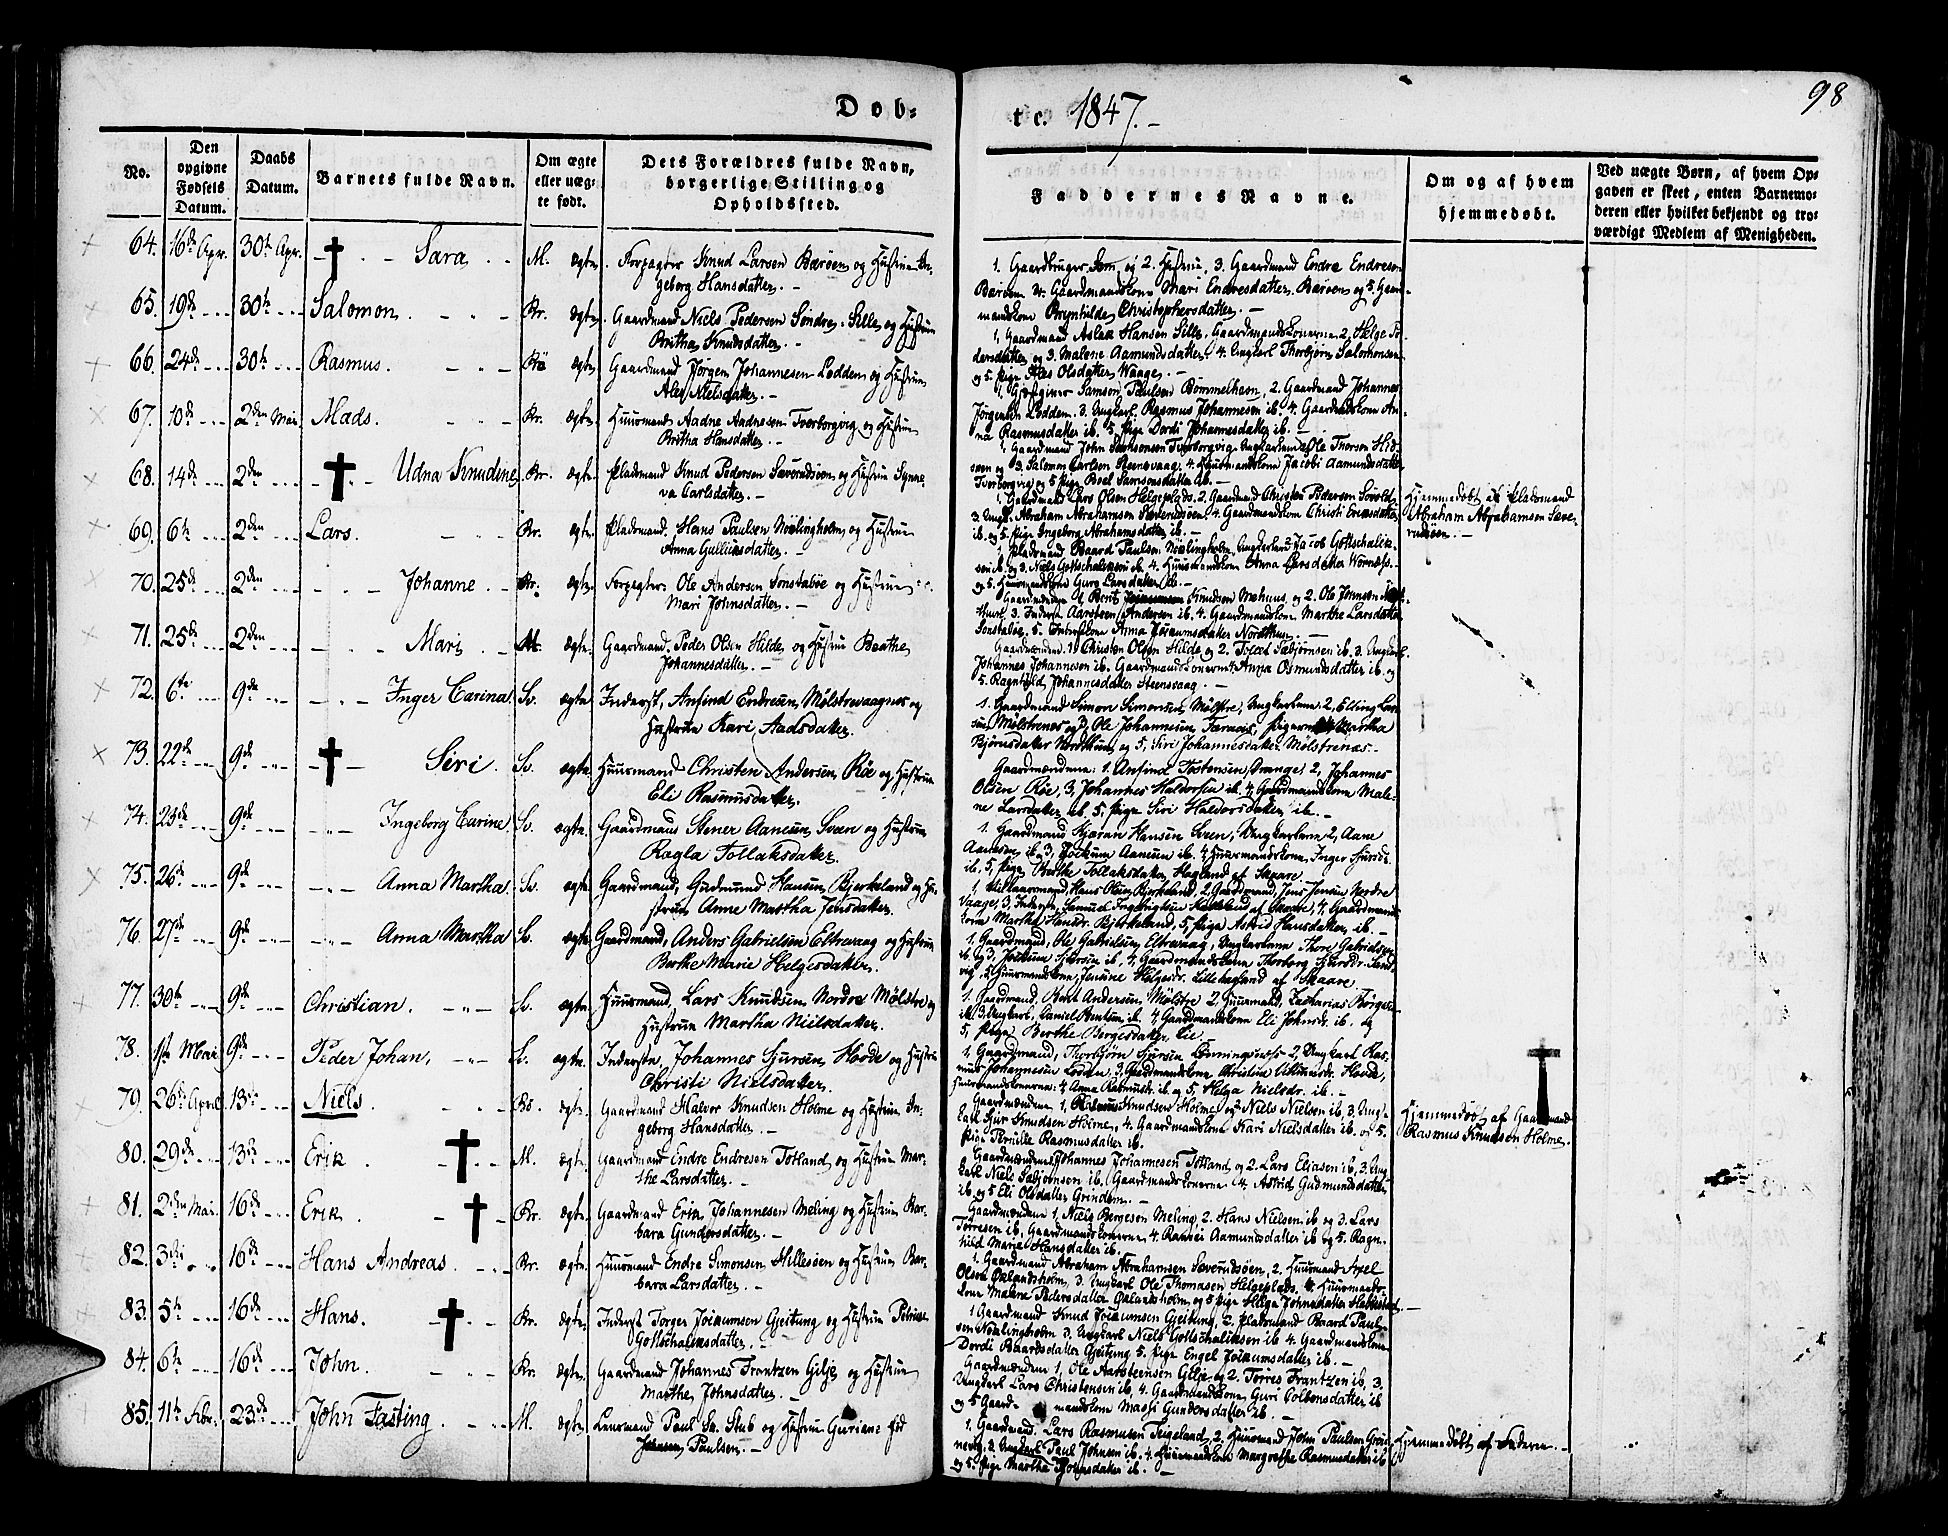 Døb-
te. 1847.-
98
No.
Den opgivne Fødsels Datum.
Daabs Datum.
Barnets fulde Navn.
Om ægte eller uægte født.
Dets Forældres fulde Navn, borgerlige Stilling og Opholdssted.
Faddernes Navne.
Om og af hvem hjemmedøbt.
Ved uægte Børn, af hvem Opgaven er skeet, enten Barnemoderen eller hvilket bekjendt og troværdigt Medlem af Menigheden.
64. 16de Apr. 30te Apr. Sara M. ægte. Forpagter Knud Larsen Bærøen og Hustrue In-
geborg Hansdatter.-
65. 19de 30te Salomon. Br. ægte. Gaardmand Niels Pedersen Søndre-Sille og Hustrue
Britha Knudsdatter.-
66. 24de 30te Rasmus. Bø ægte. Gaardmand Jørgen Johannesen Lodden og Hustrue
Nielsdatter.-
67. 10de 2den Mai Mads. Br. ægte. Huusmand Aadne Aadnesen Tverborgvig og Hustrue
Britha Hansdatter.-
68. 14de 2den Udna Knudine Br. ægte. Pladsmand Knud Pedersen og Hustrue Synne-
va Carlsdatter.-
69. 6te 2den Lars. Br. ægte. Pladsmand Hans Paulsen Nøklingholm og Hustrue
Anna Gulliksdatter.-
70. 25de 2den Johanne Br. ægte. Forpagter Ole Andersen Sonstabøe og Hustrue
Mari Johnsdatter.-
71. 25de 2den Mari M. ægte. Gaardmand Peder Olsen Hilde og Hustrue Berthe
Johannesdatter.-
72. 6te 9de Inger Carina Sv. ægte. Inderst, Anfind Endresen, Mølstrevaagnes og
Hustrue Kari Aadsdatter.
73. 22de 9de Siri. Sv. ægte. Huusmand Christen Andersen, Røe og Hustrue
Eli Rasmusdatter.
74. 25de 9de Ingeborg Carine Sv. ægte. Gaardmand Stener Aanesen, Sveen og Hustrue
Ragla Tollaksdatter.
75. 26de 9de Anna Martha Sv. ægte. Gaardmand, Gudmund Hansen, Bjerkeland og Hu-
strue Anne Martha Jensdatter.
76. 27de 9de Anna Martha Sv. ægte. Gaardmand, Anders Gabrielsen Eltravaag og Hustrue
Berthe Marie Helgesdatter.
77. 30te 9de Christian. Sv. ægte. Huusmand, Lars Knudsen Nordre Mølstre og
Hustrue Martha Nielsdatter.
78. 1ste Mai 9de Peder Johan, Sv. ægte. Inderste, Johannes Sjursen, Hovde og Hustrue
Christi Nielsdatter.
79. 26de April 13de Niels Bø. ægte. Gaardmand Halvor Knudsen Holme og Hustrue In-
geborg Hansdatter.-
80. 29de 13de Erik M. ægte. Gaardmand Endre Endresen Totland og Hustrue Mar-
the Larsdatter.-
81. 2den Mai. 16de Erik Br. ægte. Gaardmand Erik Johannesen Meling og Hustrue Bar-
bara Gundersdatter.-
82. 3die 16de Hans Andreas Br. ægte. Huusmand Endre Simonsen Hillesøen og Hustrue Bar-
bara Larsdatter.-
83. 5te 16de Hans. Br. ægte. Inderst Torger Joikumsen Gjeitung og Hustrue
Gottschalksdatter.-
84. 6te 16de John. Br. ægte. Gaardmand Johannes Frantzen Gilje og Hustrue
Marthe Johnsdatter.-
85. 11te 23de John Fasting M. ægte. Paul Stub og Hustrue Guriane
Paulsen.-
1. Gaardbruger og 2. Hustrue, 3. Gaardmand Endre Endresen
Bærøen 4. Gaardmandskone Mari Endresdatter Bærøen og 5. Gaard-
mandskone Brynhilde Christophersdatter.-
1. Gaardmand Aslak Hansen Sille, Gaardmandskonerne 2. Helge Pe-
dersdatter og 3. Malene Aamundsdatter, 4. Ungkarl Thorbjørn Salomonsen
og 5. Pige Olsdatter, Waage.-
1. Samson Paulsen Bømmelhavn, 2. Gaardmand Johannes
Jørgensen Lodden. 3. Ungkarl. Rasmus Johannesen ib. 4. Gaardmandskone An-
na Rasmusdatter ib. 5. Pige Dordi Johannesdatter ib.-
1. Gaardmand John Tverborgvig, Ungkarlene Ole Thorsen Hid-
og 3. Salomon Carlsen Steensvaag. 4. Huusmandskone Jacobi Aamundsdatter
Tverborgvig og 5 Pige Boel Samsonsdatter ib.-
1. Gaardmand Lars Olsen Helgeplads. 2. Gaardmand Christen Pedersen
3. Ungk. Abraham Abrahamsen 4. Gaardmandskone Christi
ib. og 5. Pige Ingeborg Abrahamsdatter ib.-
1. Pladsmand Baard Paulsen Nøklingholm, Ungkarlene 2. Jacob Gottschalk-
sen ib. og 3. Niels Gottschalksen ib. 4. Huusmandskone Anna Larsdatter
og 5. Huusmandskone Guro Larsdatter ib.-
Gaardmændene 1. Berit Knudsen Mæhuus, og 2. Ole Johnsen
3. Inderst Aarsteen Andersen ib. 4. Gaardmandskone Marthe Larsdatter
Sonstabøe, 5. Inderstkone Anna Joikumsdatter Nordthun.-
Gaardmændene. 1. Christen Olsen Hilde og 2. Sæbjørnsen ib. 3. Ungkarl
Johannes Johannesen ib. Gaardmandskonerne 4. Anna Osmundsdatter ib. og
5. Ragnhild Johannesdatter Steensvaag.-
1. Gaardmand Simon Simonsen, Mølstre, Ungkarlene 2, Elling Lar-
sen Mølstrenes og 3, Ole Johannesen Pigerne 4 Martha
Bjørnsdatter Nordthun, og 5, Siri Johannesdatter Mølstrenæs.-
Gaardmændene: 1. Anfind Tostensen, 2, Johannes
Olsen Røe, 3, Johannes Haldorsen ib. 4, Gaardmandskone Male-
ne Larsdatter ib. 5, Pige Siri Haldorsdatter, ib.-
1. Gaardmand Hansen Sveen, Ungkarlene, 2, Aane
Aanesen, ib. 3, Joikum Aanesen ib. 4, Huusmandskone, Inger
ib, 5, Pige Berthe Tollaksdatter, Hagland af Skaare.
1, Hans Olsen Bjerkeland, 2, Gaardmand, Jens Jensen Nordre
Vaage, 3, Inderst, Samuel Ingebrigtsen af Skaare, 4, Gaardmands-
kone Martha Hansdr. Bjerkeland, 5, Pige Astrid Hansdatter ib.-
1. Gaardmand, Ole Gabrielsen, Eltravaag, Ungkarlene Thore Gabrielsen
ib. og 3, Joikum Sjursen ib, 4, Gaardmandskone Thorborg Sjursdr. Sand-
vig, 5 Huusmandskone, Jensine Helgesdr. Lillehagland af Skaare.
1. Gaardmand, Bent Andersen, Mølstre, 2, Huusmand, Zacharias Børge-
ib. 3, Ungkarl, Daniel Bentsen, ib. 4, Gaardmandskone Eli Johnsdr. ib. og
5, Pige Berthe Bergesdatter,
1, Gaardmand, Thorbjørn Sjursen 2, Ungkarl Ras-
mus Johannesen 3, Gaardmandskone Hovde,
Huusmandskonerne: 4, Anna Rasmusdr. ib. og 5, Helga Nielsdr. ib.-
Gaardmændene 1, Rasmus Knudsen Holme og 2. Niels Nielsen ib, 3. Ung-
karl Sjur Knudsen Holme, 4. Gaardmandskone Kari Nielsdatter ib. og 5.
Pige Pernille Rasmusdatter ib.
Gaardmændene 1. Johannes Johannesen Totland, og 2. Lars Eliasen ib, 3. Ung-
karl Niels Sæbjørnsen ib. Gaardmandskonerne 4. Astrid Gudmundsdatter,
ib. og 5 Eli Olsdatter Grindem.-
Gaardmændene 1, Niels Bergesen Meling, 2. Hans Nielsen ib og 3. Lars
Torresen ib, Gaardmandskonerne, 4. Ranvei Aamundsdatter ib og 5. Ragn-
hild Marie Hansdatter ib.
1. Gaardmand Abraham Abrahamsen Søverudsøen, 2. Huusmand Axel
Olsen Økslandsholm, 3. Ungkarl Ole Thomasen Helgeplads. 4. Huusmands-
kone Malene Pedersdatter Økslandsholm, og 5 Pige Helga Johnsdatter
1. Gaardmand Knud Joikumsen Gjeitung, 2. Pladsmand Baard Paul-
sen Nøklingholm 3. Ungkarl Niels Gottschalksen ib 4. Gaardmandskone
Dordi Baardsdatter Gjeitung 5. Pige Engel Joikumsdatter ib.-
Gaardmændene 1. Ole Aarsteensen Gilje og 2. Torres Frantzen ib, 3.
Ungkarl Lars Christensen ib, 4. Gaardmandskone, Guri Colbensdatter ib
og 5 Gaardmandskone Massi Gundersdatter ib.-
1. Gaardmand. Lars Rasmusen Teigeland, 2. Huusmand John Paulsen
3. Ungkarl Paul Johnsen ib. 4. Huusmandskone Margrethe Rasmusdatter ib
og 5. Pige Martha Johnsdatter ib.-
Hjemmedøbt af Pladsmand
Abraham Abrahamsen Søve-
rudsøen.-
Hjemmedøbt af Gaardmand
Rasmus Knudsen Holme.
Hjemmedøbt af Faderen.-